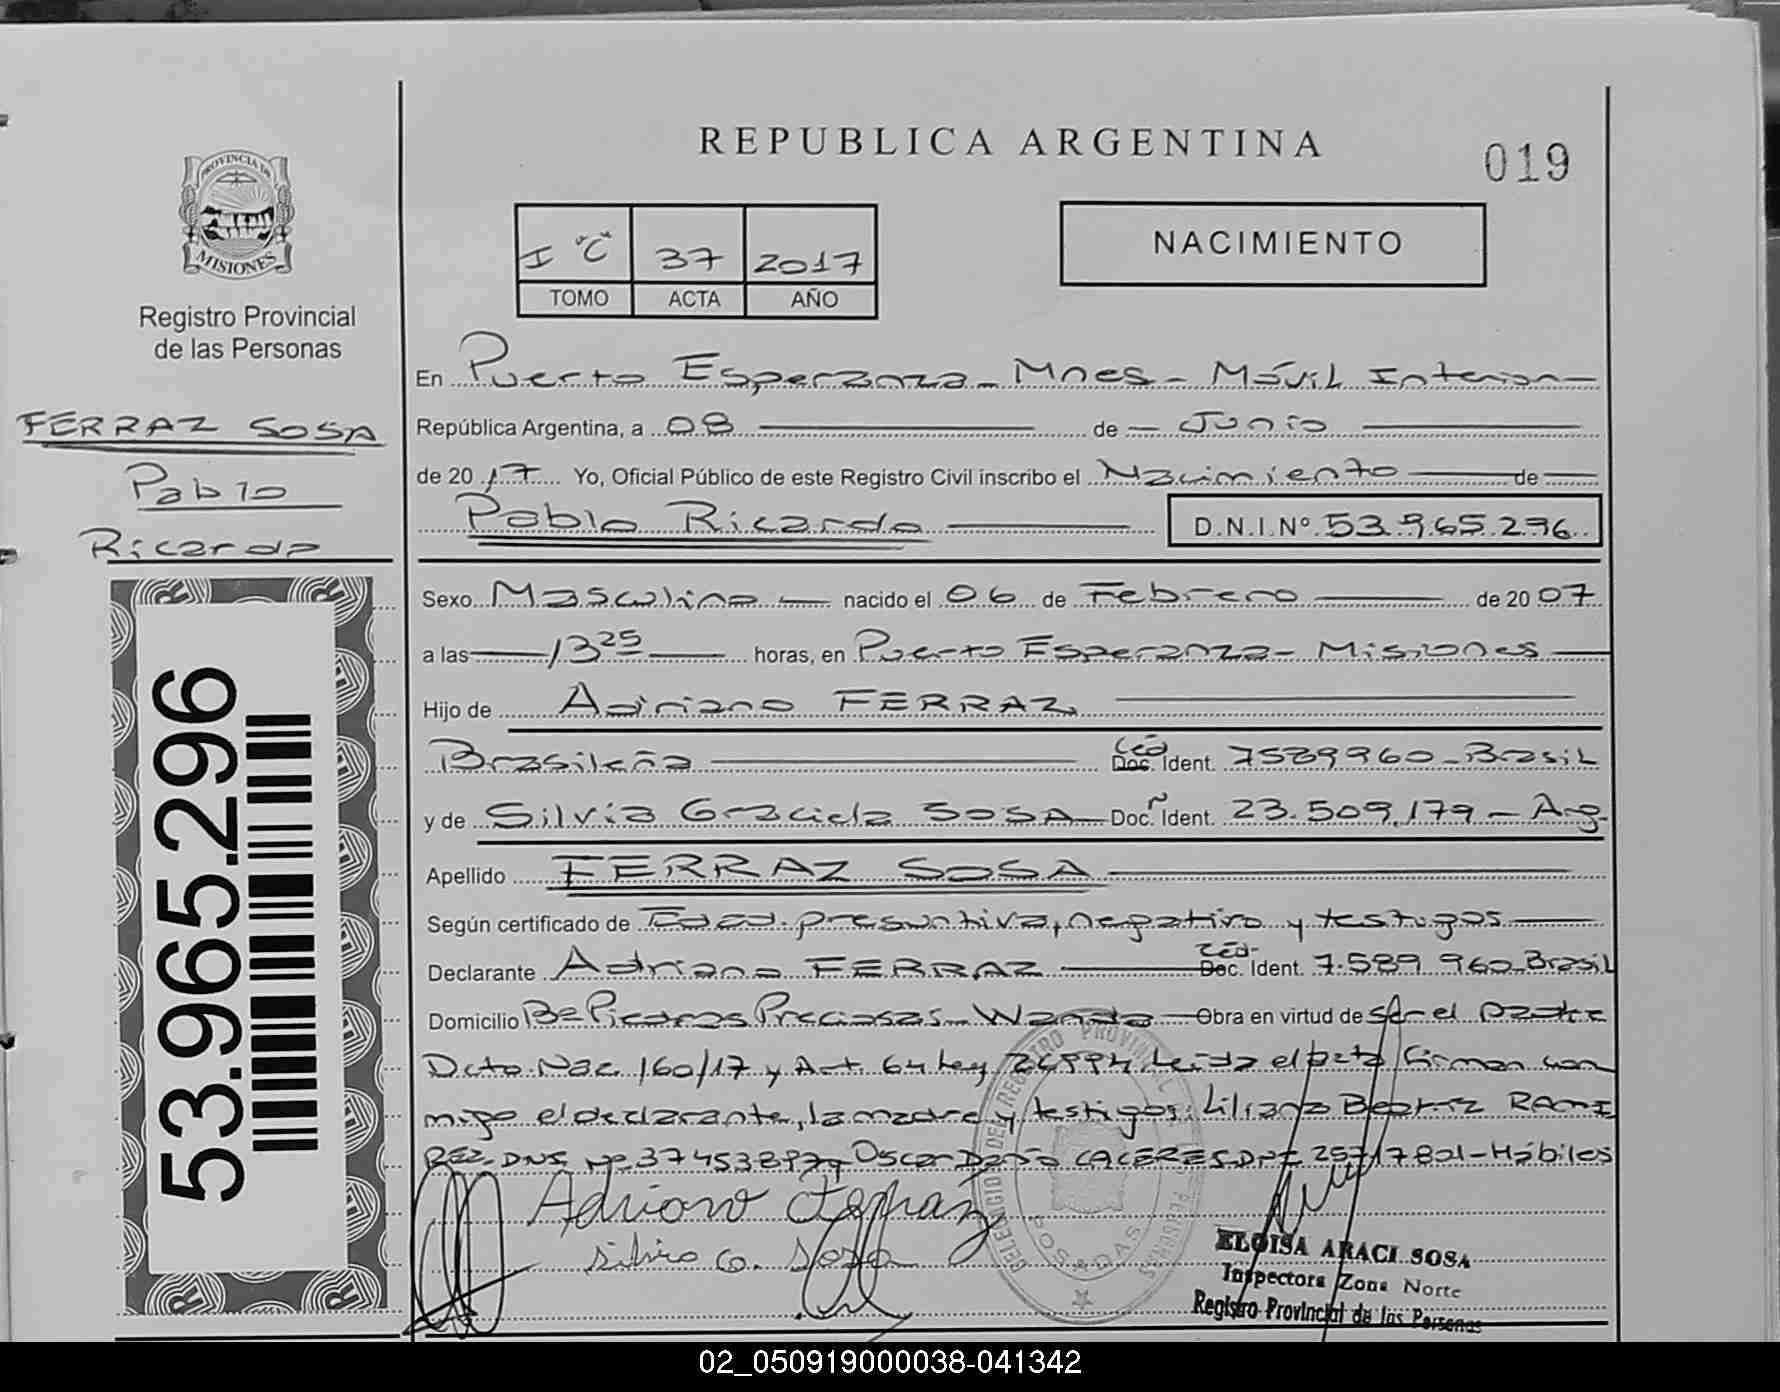 REPUBLICA ARGENTINA
019
PROVINCIA DE
MISIONES
Registro Provincial
de las Personas
FERRAZ SOSA
Pablo
Ricardo
53.965.296
I "C" 37 2017
TOMO ACTA AÑO
NACIMIENTO
En Puerto Esperanza - Mnes - Móvil Interior
República Argentina, a 08 de Junio
de 2017 Yo, Oficial Público de este Registro Civil inscribo el Nacimiento de
Pablo Ricardo D.N.I.Nº 53.965.296
Sexo Masculino nacido el 06 de Febrero de 2007
a las 13 25 horas, en Puerto Esperanza - Misiones
Hijo de Adriano FERRAZ
Brasileña Céd Doc. Ident. 7589960 - Brasil
y de Silvia Graciela SOSA Doc. Ident. 23.509.179 - Arg
Apellido FERRAZ SOSA
Según certificado de Edad presuntiva, negativo y testigos
Declarante Adriano FERRAZ Céd. Doc. Ident. 7.589.960 - Brasil
Domicilio Bº Piedras Preciosas - Wanda Obra en virtud de ser el padre
Dcto. Nac. 160/17 y Art. 64 Ley 26994 Leída el acta firman con
migo el declarante, la madre y testigos: Liliana Beatriz RAMI
REZ DNI Nº 37453897 y Oscar Darío CACERES DNI 25717801 - Hábiles
Adriano Ferraz
Silvia G. Sosa
POSADAS
ELOISA ARACI SOSA
Inspectora Zona Norte
Registro Provincial de las Personas
02_050919000038-041342